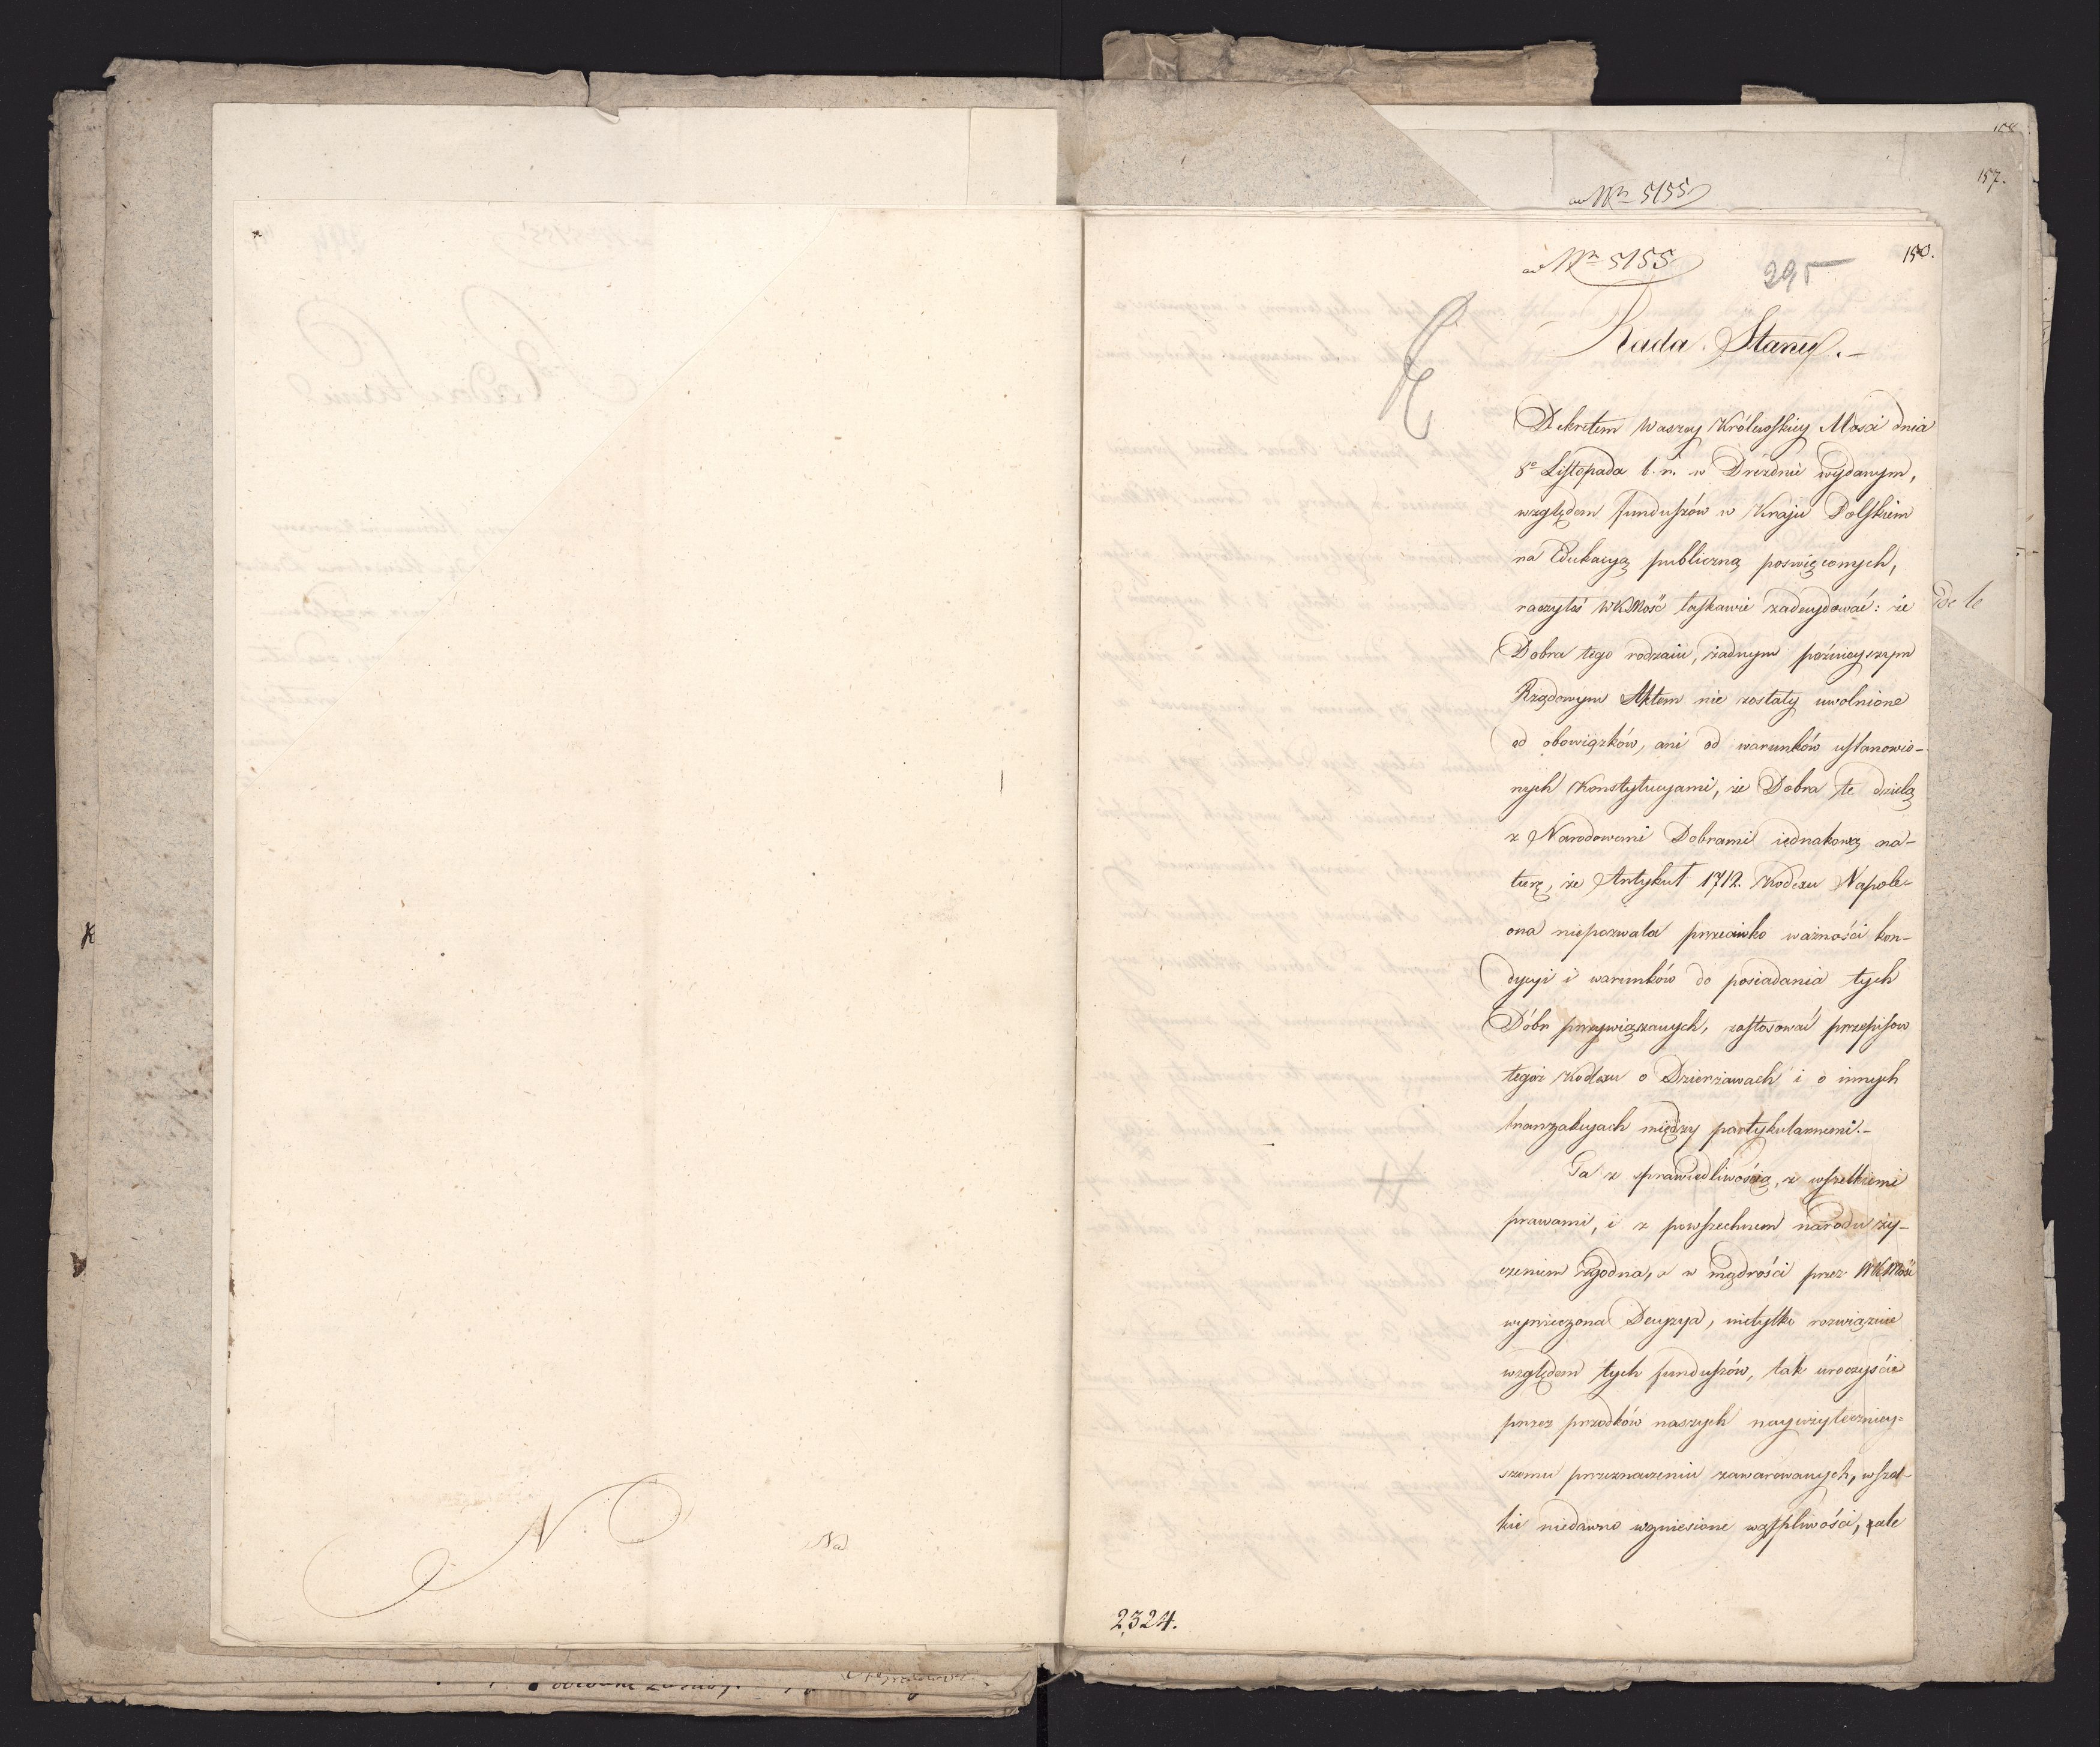 157.
ad Nr 5155
ad Nr 5155
295
150.
Rada Stanu.-
Dekretem Waszey Królewskiey Mości dnia
8º Listopada b. r. w Dreźnie wydanym,
względem funduszów w Kraju Polskim
na Edukacyą publiczną poswięconych,
raczyłeś WKMość łaskawie zadecydować: że
Dobra tego rodzaiu, żadnym poźnieyszym
Rządowym Aktem nie zostały uwolnione
od obowiązków, ani od warunków ustanowio-
nych Konstytucyami, że Dobra te dzielą
z Narodowemi Dobrami iednakową na-
turę, że Artykuł 1712. Kodexu Napole-
ona niepozwala przeciwko ważności kon-
dycyi i warunków do posiadania tych
Dóbr przywiązanych, zastosować przepisow
tegoż Kodexu o Dzierżawach i o innych
tranzakcyach między partykularnemi.-
Ta z sprawiedliwością, z wszelkiemi
prawami, i z powszechnem narodu ży-
czeniem zgodna, a w mądrości przez WKMość
wyrzeczona Decyzya, nietylko rozwiązuie
względem tych funduszów, tak uroczyście
przez przodków naszych nayużyteczniey-
szemu przeznaczeniu zawarowanych, wszel-
kie niedawno wzniesione wątpliwości, ale
Nad
2324.